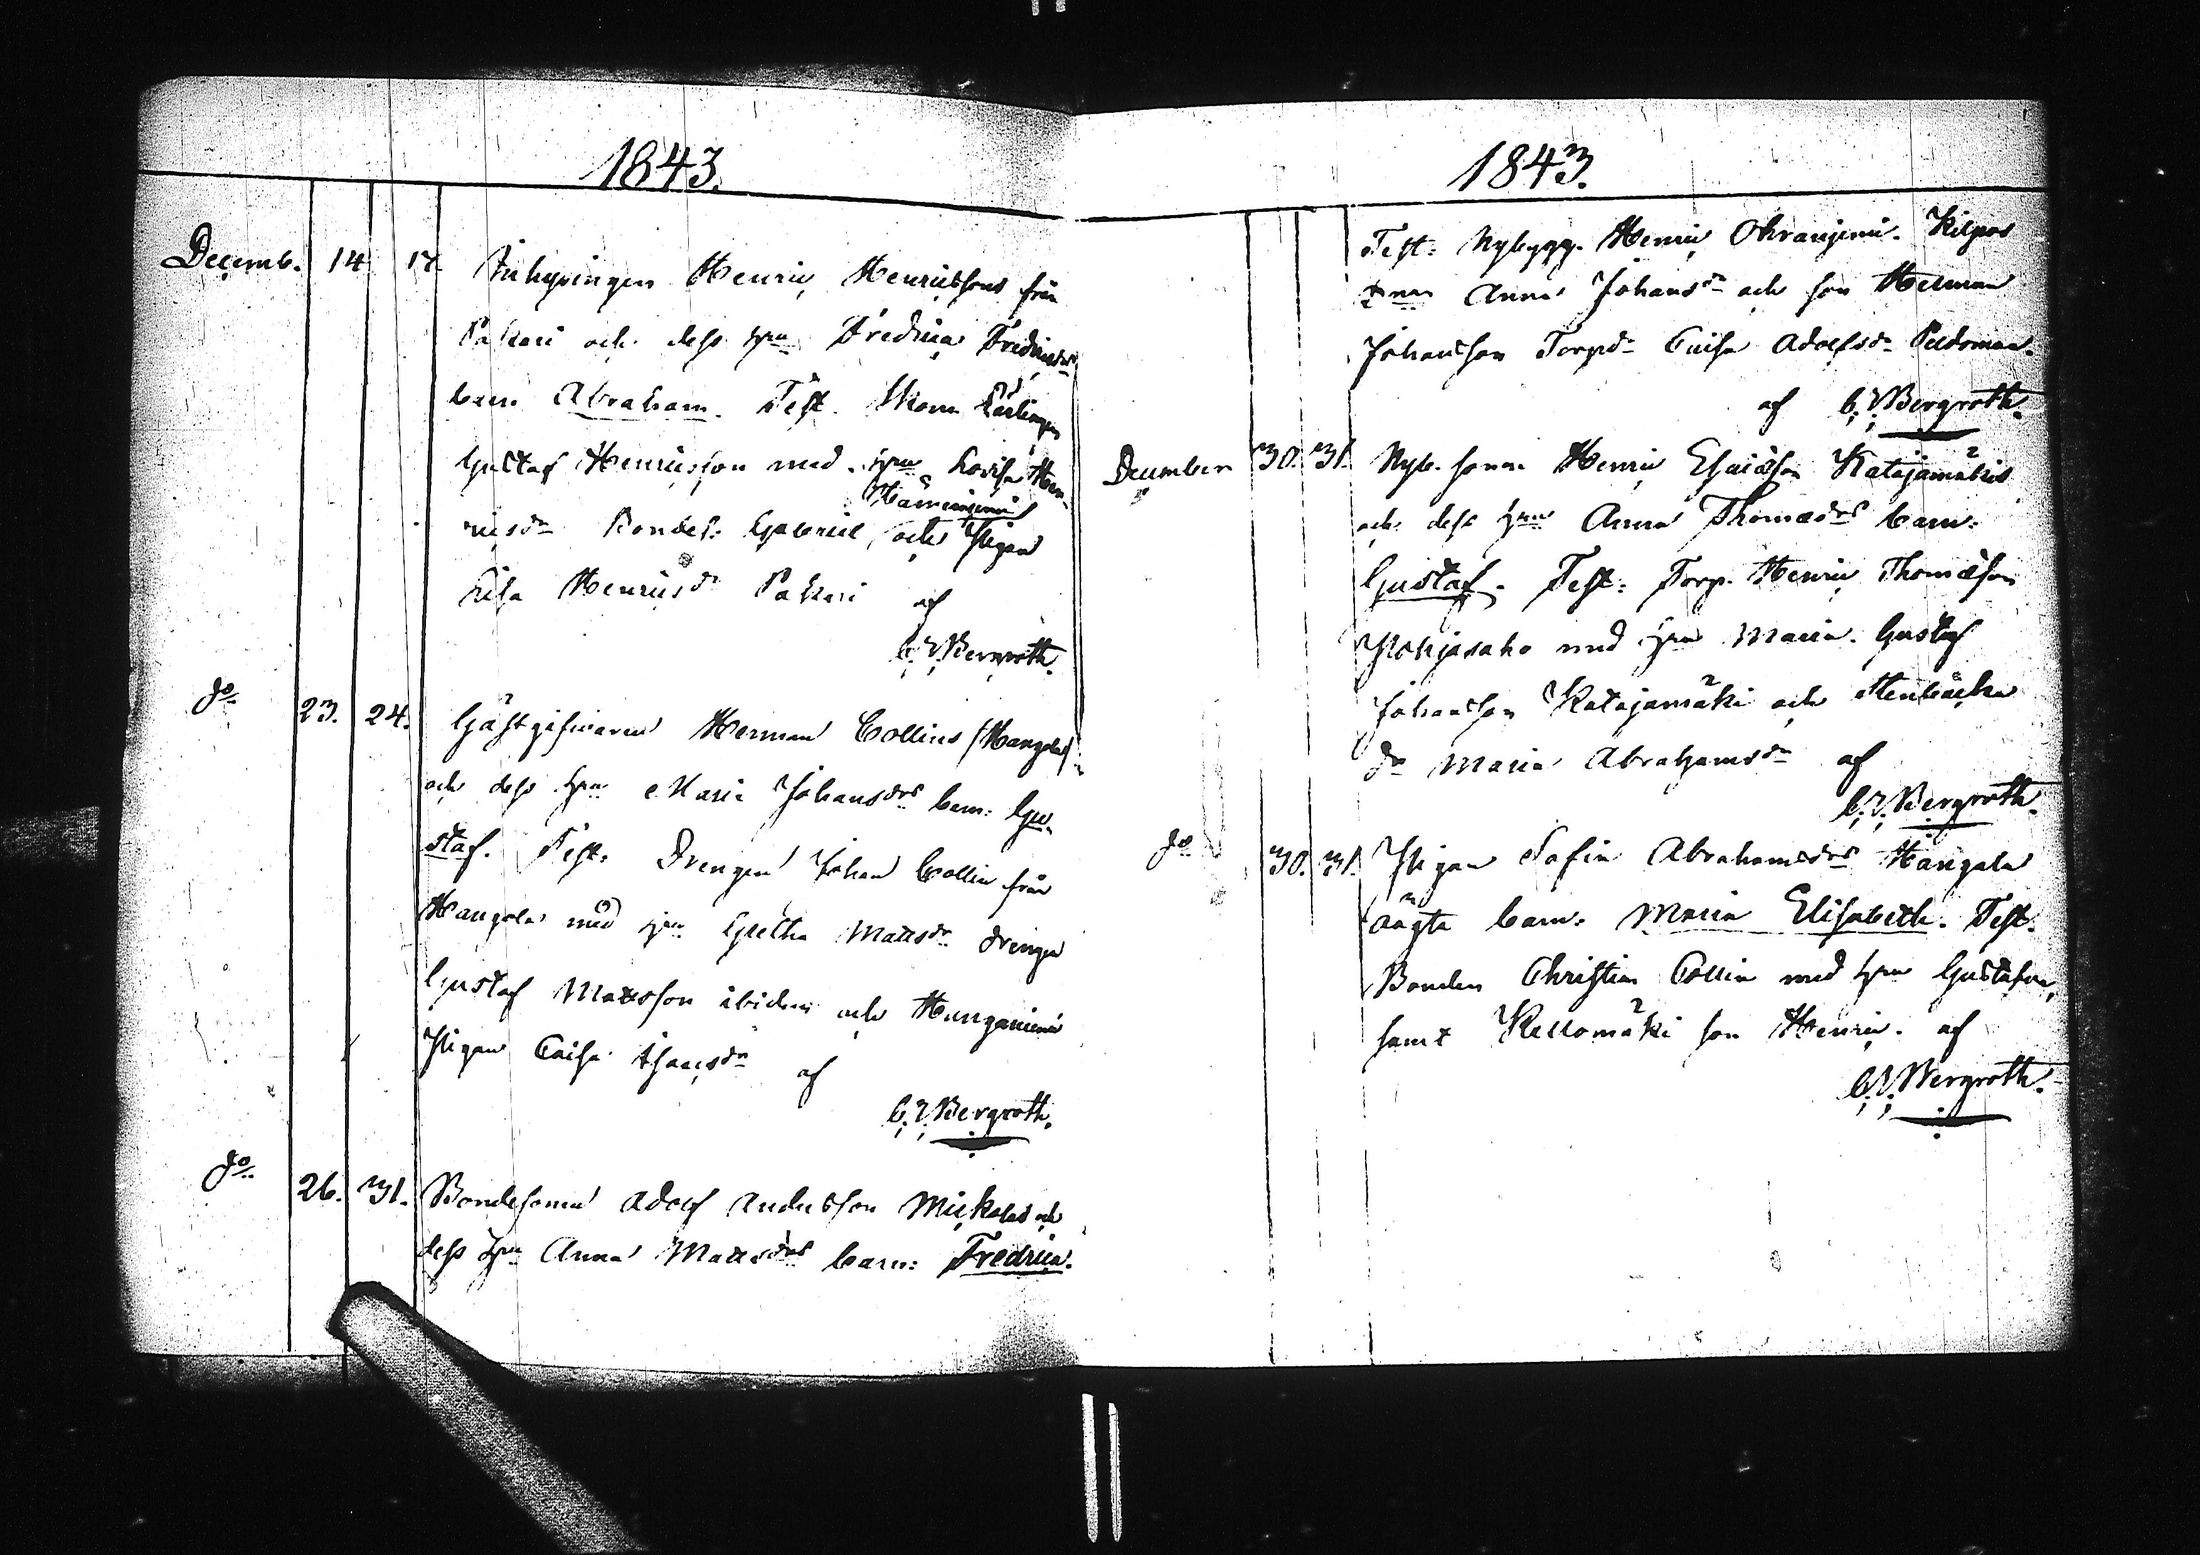 1843.
Decemb. 14. 17. Inhysingen Henric Henricssons från
Pakari och dess hru Fredrica Fredricsdrs
barn Abraham. Test. Skom. Lärlingen
Gustaf Henricsson med hru Lovisa Hen-
Hänninjemi
ricsdr Bondes. Gabriel och Pigan
Caisa Henricsdr Pakari af
C. J. Bergroth.
do 23. 24. Gästgifwaren Herman Collins (Kangola)
och dess hru Maria Johansdrs barn: Gu-
staf. Test: Drengen Johan Collin från
Kangola med hru Gretha Mattsdr drengen
Gustaf Mattsson ibidem och
Pigan Caisa Isacsdr af
C. J. Bergroth.
do 26. 31. Bondesonen Adolf Andersson Mickolas och
dess hru Anna Mattsdrs barn: Fredrica.
1843.
Test: Nybygg. Henric Kilpos
Anna Johansdr och son Herman
Johansson Torpdr Caisa Adolfsdr
af C. J. Bergroth.
December 30. 31. Nyb. sonen Henric Esaiasson Katajamäkis
och dess hru Anna Thomasdrs barn:
Gustaf. Test: Torp. Henric Thomasson
Pohjasaho med hru Maria. Gustaf
Johansson Katajamäki och Stenbacka
dr Maria Abrahamsdr af
C. J. Bergroth.
do 30. 31. Pigan Sofia Abrahamsdrs Kangola
oägta barn: Maria Elisabeth. Test.
Bonden Christian Collin med hru Gustafva,
samt Kellomäki son Henric. af
C. J. Bergroth.